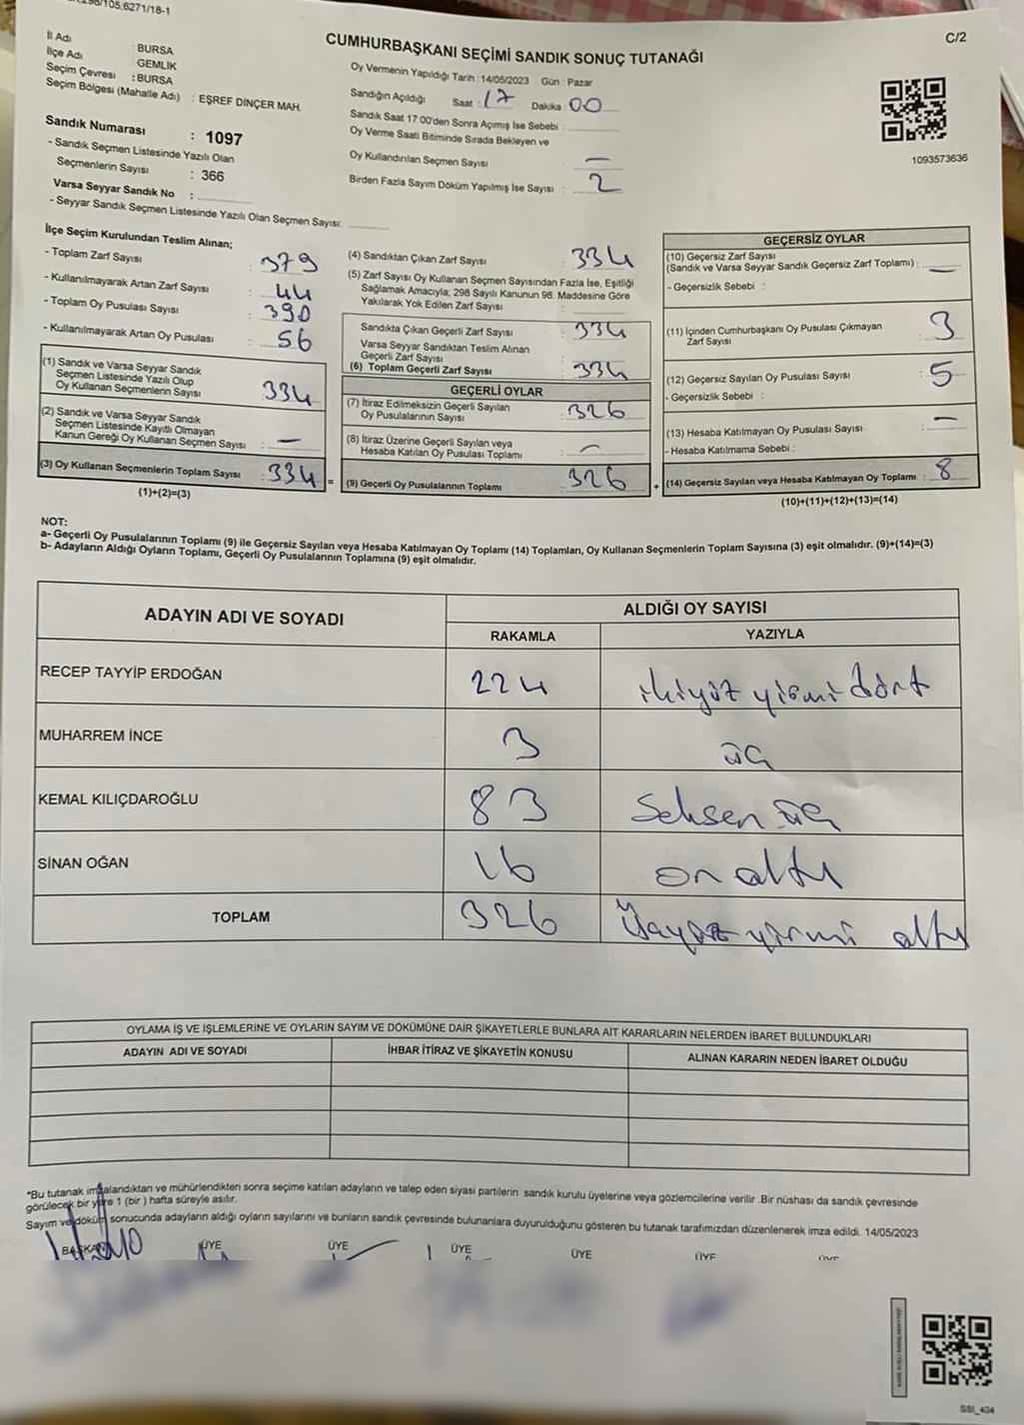 /105.6271/18-1
C/2
CUMHURBAŞKANI SEÇİMİ SANDIK SONUÇ TUTANAĞI
İl Adı BURSA
İlçe Adı : GEMLİK
Seçim Çevresi : BURSA
Seçim Bölgesi (Mahalle Adı) : EŞREF DİNÇER MAH.
Sandık Numarası : 1097
- Sandık Seçmen Listesinde Yazılı Olan
Seçmenlerin Sayısı : 366
Varsa Seyyar Sandık No :
- Seyyar Sandık Seçmen Listesinde Yazılı Olan Seçmen Sayısı:
Oy Vermenin Yapıldığı Tarih : 14/05/2023 Gün : Pazar
Sandığın Açıldığı Saat : 17 Dakika 00
Sandık Saat 17:00'den Sonra Açılmış İse Sebebi :
Oy Verme Saati Bitiminde Sırada Bekleyen ve
Oy Kullandırılan Seçmen Sayısı —
Birden Fazla Sayım Döküm Yapılmış İse Sayısı : 2
1093573636
İlçe Seçim Kurulundan Teslim Alınan;
- Toplam Zarf Sayısı : 379
- Kullanılmayarak Artan Zarf Sayısı : 44
- Toplam Oy Pusulası Sayısı : 390
- Kullanılmayarak Artan Oy Pusulası : 56
(1) Sandık ve Varsa Seyyar Sandık
Seçmen Listesinde Yazılı Olup
Oy Kullanan Seçmenlerin Sayısı : 334
(2) Sandık ve Varsa Seyyar Sandık
Seçmen Listesinde Kayıtlı Olmayan
Kanun Gereği Oy Kullanan Seçmen Sayısı : —
(3) Oy Kullanan Seçmenlerin Toplam Sayısı : 334 =
(1)+(2)=(3)
(4) Sandıktan Çıkan Zarf Sayısı : 334
(5) Zarf Sayısı Oy Kullanan Seçmen Sayısından Fazla İse, Eşitliği
Sağlamak Amacıyla; 298 Sayılı Kanunun 98. Maddesine Göre
Yakılarak Yok Edilen Zarf Sayısı :
Sandıkta Çıkan Geçerli Zarf Sayısı : 334
Varsa Seyyar Sandıktan Teslim Alınan
Geçerli Zarf Sayısı :
(6) Toplam Geçerli Zarf Sayısı : 334
GEÇERLİ OYLAR
(7) İtiraz Edilmeksizin Geçerli Sayılan
Oy Pusulalarının Sayısı : 326
(8) İtiraz Üzerine Geçerli Sayılan veya
Hesaba Katılan Oy Pusulası Toplamı : —
(9) Geçerli Oy Pusulalarının Toplamı : 326 +
GEÇERSİZ OYLAR
(10) Geçersiz Zarf Sayısı
(Sandık ve Varsa Seyyar Sandık Geçersiz Zarf Toplamı) : —
- Geçersizlik Sebebi :
(11) İçinden Cumhurbaşkanı Oy Pusulası Çıkmayan
Zarf Sayısı : 3
(12) Geçersiz Sayılan Oy Pusulası Sayısı : 5
- Geçersizlik Sebebi :
(13) Hesaba Katılmayan Oy Pusulası Sayısı : —
- Hesaba Katılmama Sebebi :
(14) Geçersiz Sayılan veya Hesaba Katılmayan Oy Toplamı : 8
(10)+(11)+(12)+(13)=(14)
NOT:
a- Geçerli Oy Pusulalarının Toplamı (9) ile Geçersiz Sayılan veya Hesaba Katılmayan Oy Toplamı (14) Toplamları, Oy Kullanan Seçmenlerin Toplam Sayısına (3) eşit olmalıdır. (9)+(14)=(3)
b- Adayların Aldığı Oyların Toplamı, Geçerli Oy Pusulalarının Toplamına (9) eşit olmalıdır.
ADAYIN ADI VE SOYADI ALDIĞI OY SAYISI
RAKAMLA YAZIYLA
RECEP TAYYİP ERDOĞAN 224 ikiyüz yirmi dört
MUHARREM İNCE 3 üç
KEMAL KILIÇDAROĞLU 83 Seksen üç
SİNAN OĞAN 16 on altı
TOPLAM 326 Üçyüz yirmi altı
OYLAMA İŞ VE İŞLEMLERİNE VE OYLARIN SAYIM VE DÖKÜMÜNE DAİR ŞİKAYETLERLE BUNLARA AİT KARARLARIN NELERDEN İBARET BULUNDUKLARI
ADAYIN ADI VE SOYADI İHBAR İTİRAZ VE ŞİKAYETİN KONUSU ALINAN KARARIN NEDEN İBARET OLDUĞU
*Bu tutanak imzalandıktan ve mühürlendikten sonra seçime katılan adayların ve talep eden siyasi partilerin sandık kurulu üyelerine veya gözlemcilerine verilir. Bir nüshası da sandık çevresinde
görülecek bir yere 1 (bir) hafta süreyle asılır.
Sayım ve döküm sonucunda adayların aldığı oyların sayılarını ve bunların sandık çevresinde bulunanlara duyurulduğunu gösteren bu tutanak tarafımızdan düzenlenerek imza edildi. 14/05/2023
BAŞKAN ÜYE ÜYE ÜYE ÜYE ÜYE ÜYE
SSI_404